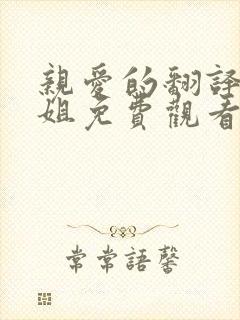 親愛的翻譯
姐免費觀看
常常語馨